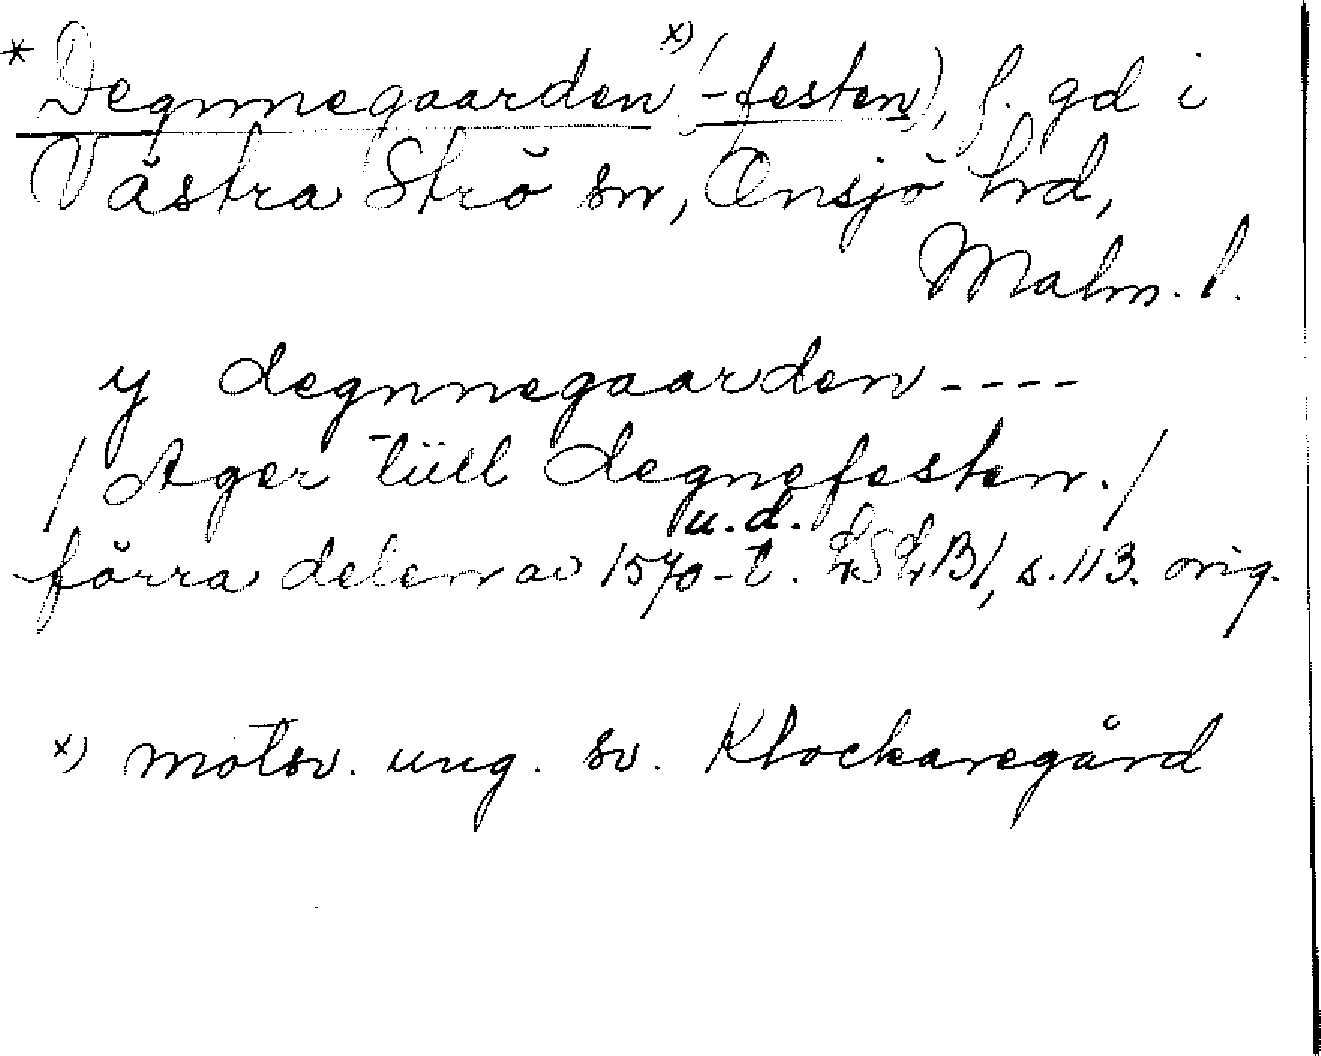 * Degnnegaarden x) (-festen), f. gd i
Västra Strö sn, Onsjö hd,
Malm. l.
y degnnegaarden ----
/ Ager tüll degnefesten. /
u.d.
förra delen av 1570-t. LSLB1, s. 113. orig.
x) motsv. ung. sv. Klockaregård